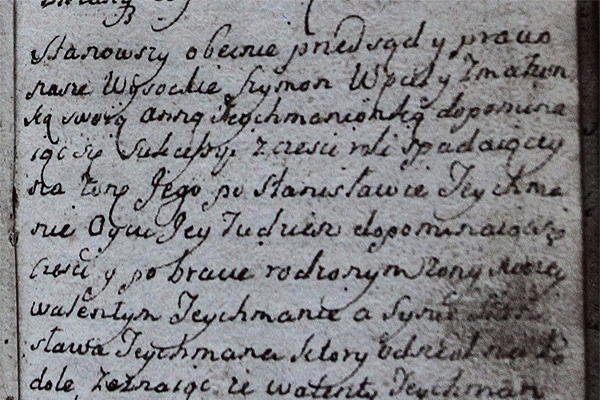 Stanowszy obecnie przed sąd y prawo
nasze Wysockie Szymon Wpuł y Zmałżon
ką swoią Anną Teychmanionką dopomina
iąc się Sukcessyi z czesci roli spadaiącey
na Żonę Jego po Stanisławie Teychma
nie Oycu Jey Tudziesz dopominaiąc się
Czesci y po bracie rodzonym Żony swoiey
walentym Teychmanie a Synie Stani
sława Teychmana ktory odzieł na
dole Zeznaiąc ze walenty Teychman